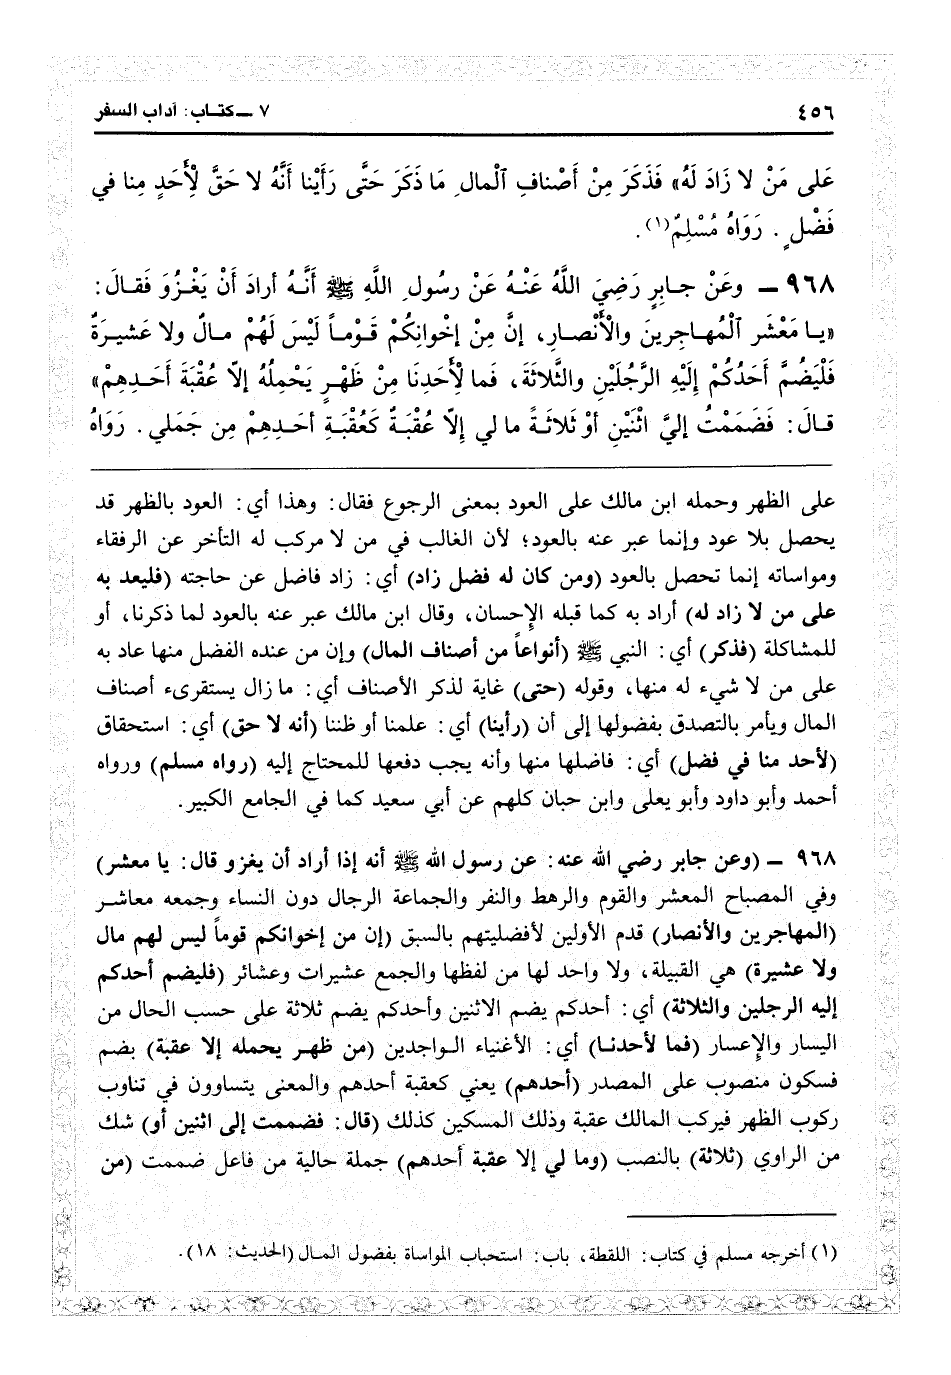 ٤٥٦ ٧ ــ كتـاب: آداب السفر
عَلى مَنْ لا زَادَ لَهُ» فَذَكَرَ مِنْ أَصْنافِ ٱلْمالِ مَا ذَكَرَ حَتَّى رَأَيْنا أَنَّهُ لا حَقَّ لأَحَدٍ مِنا في
فَضْلٍ . رَوَاهُ مُسْلِمٌ(١).
٩٦٨ ــ وعَنْ جـابِرٍ رَضِيَ اللَّهُ عَنْـهُ عَنْ رسُولِ اللَّهِ ﷺ أَنَّـهُ أرادَ أَنْ يَغْزُوَ فَقـالَ:
«يـا مَعْشَر ٱلْمُهـاجِرِينَ والأَنْصـارِ، إنَّ مِنْ إخْوانِكُمْ قَـوْمـاً لَيْسَ لَهُمْ مـالٌ ولا عَشيـرَةٌ
فَلْيَضُمَّ أَحَدُكُمْ إلَيْهِ الرَّجُلَيْنِ والثَّلاثَةَ، فَما لأَحَدِنَا مِنْ ظَهْرٍ يَحْمِلُهُ إلاّ عُقْبَةَ أَحَـدِهِمْ»
قـالَ: فَضَمَمْتُ إليَّ اثْنَيْنِ أوْ ثَلاثَـةً ما لي إلاّ عُقْبَـةٌ كَعُقْبَـةِ أحَـدِهِمْ مِن جَمَلي . رَوَاهُ
على الظهر وحمله ابن مالك على العود بمعنى الرجوع فقال: وهذا أي: العود بالظهر قد
يحصل بلا عود وإنما عبر عنه بالعود؛ لأن الغالب في من لا مركب له التأخر عن الرفقاء
ومواساته إنما تحصل بالعود (ومن كان له فضل زاد) أي: زاد فاضل عن حاجته (فليعد به
على من لا زاد له) أراد به كما قبله الإحسان، وقال ابن مالك عبر عنه بالعود لما ذكرنا، أو
للمشاكلة (فذكر) أي: النبي ﷺ (أنواعاً من أصناف المال) وإن من عنده الفضل منها عاد به
على من لا شيء له منها، وقوله (حتى) غاية لذكر الأصناف أي: ما زال يستقرىء أصناف
المال ويأمر بالتصدق بفضولها إلى أن (رأينا) أي: علمنا أو ظننا (أنه لا حق) أي: استحقاق
(لأحد منا في فضل) أي: فاضلها منها وأنه يجب دفعها للمحتاج إليه (رواه مسلم) ورواه
أحمد وأبو داود وأبو يعلى وابن حبان كلهم عن أبي سعيد كما في الجامع الكبير.
٩٦٨ ــ (وعن جابر رضي الله عنه: عن رسول الله ﷺ أنه إذا أراد أن يغزو قال: يا معشر)
وفي المصباح المعشر والقوم والرهط والنفر والجماعة الرجال دون النساء وجمعه معاشـر
(المهاجرين والأنصار) قدم الأولين لأفضليتهم بالسبق (إن من إخوانكم قوماً ليس لهم مال
ولا عشيرة) هي القبيلة، ولا واحد لها من لفظها والجمع عشيرات وعشائر (فليضم أحدكم
إليه الرجلين والثلاثة) أي: أحدكم يضم الاثنين وأحدكم يضم ثلاثة على حسب الحال من
اليسار والإعسار (فما لأحدنـا) أي: الأغنياء الـواجدين (من ظهـر يحمله إلا عقبة) بضم
فسكون منصوب على المصدر (أحدهم) يعني كعقبة أحدهم والمعنى يتساوون في تناوب
ركوب الظهر فيركب المالك عقبة وذلك المسكين كذلك (قال: فضممت إلى اثنين أو) شك
من الراوي (ثلاثة) بالنصب (وما لي إلا عقبة أحدهم) جملة حالية من فاعل ضممت (من
(١) أخرجه مسلم في كتاب: اللقطة، باب: استحباب المواساة بفضول المـال (الحديث: ١٨).